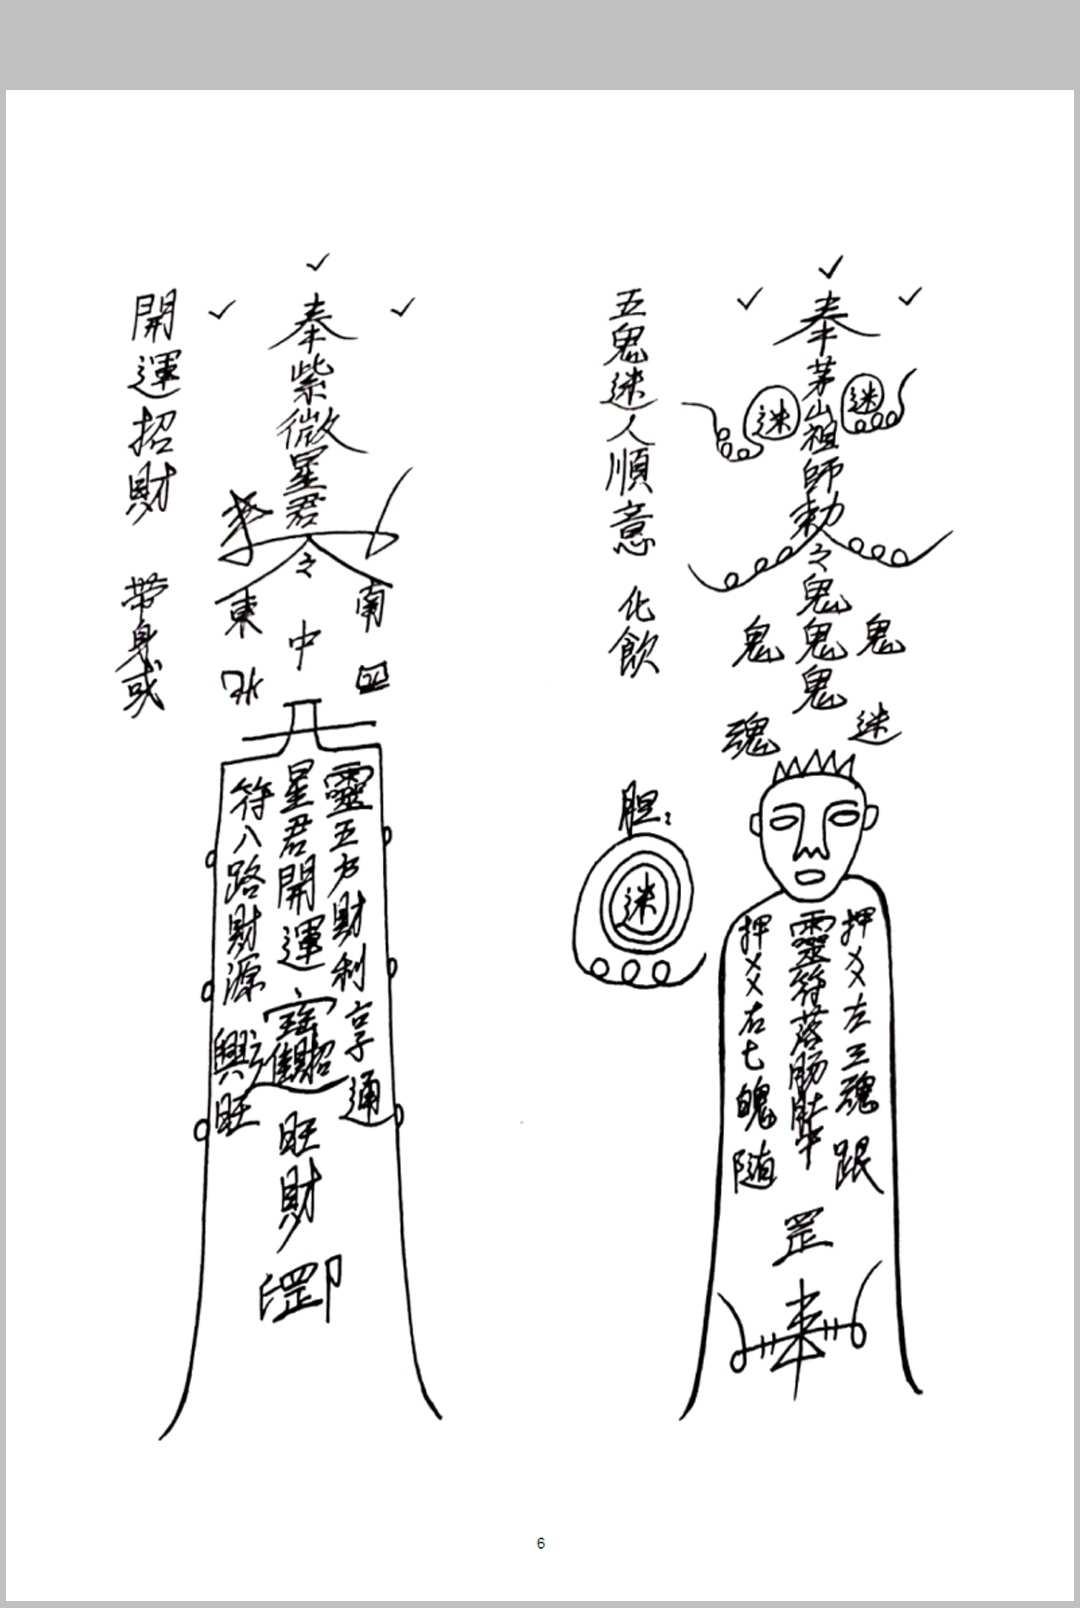 奉茅山祖師勅令鬼鬼鬼
迷
迷
鬼
鬼
魂
迷
押
左三魂
跟
靈符落肠肚中
押
右七魄
随
罡
五鬼迷人順意 化飲
胆:
迷
奉紫微星君令
東
南
中
北
四
靈五方財利享通
星君開運
旺財
符八路財源興旺
罡
印
開運招財 带身或
6